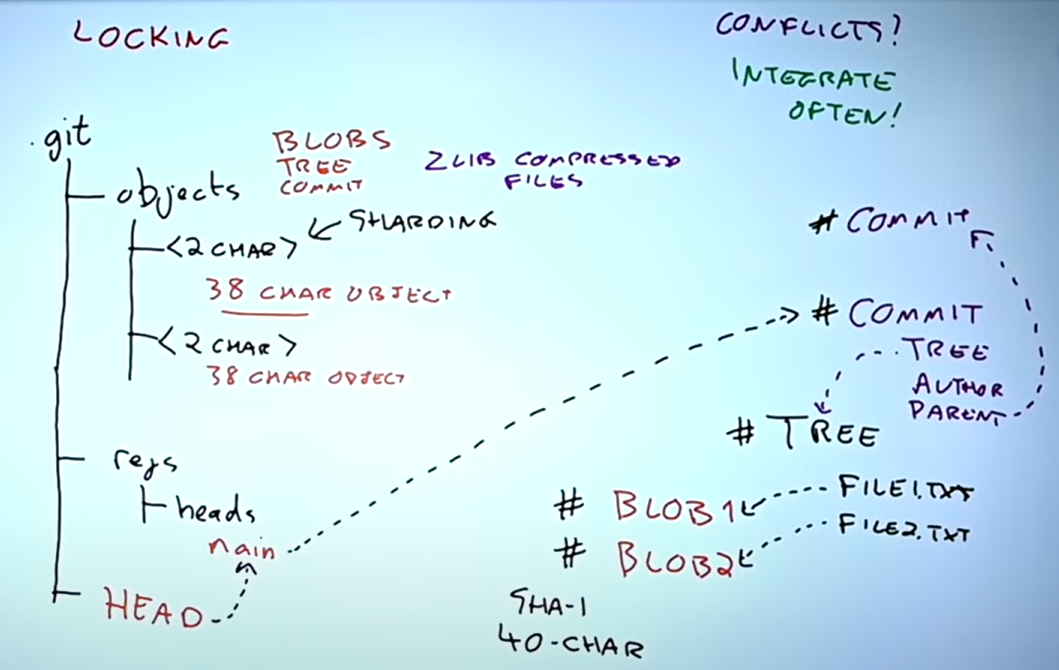 LOCKING
CONFLICTS?
INTEGRATE
OFTEN!
.git
objects
BLOBS
TREE
COMMIT
ZLIB COMPRESSED
FILES
<2 CHAR>
SHARDING
38 CHAR OBJECT
<2 CHAR>
38 CHAR OBJECT
refs
heads
main
HEAD
# COMMIT
# COMMIT
TREE
AUTHOR
PARENT
# TREE
# BLOB1
FILE1.TXT
# BLOB2
FILE2.TXT
SHA-1
40-CHAR